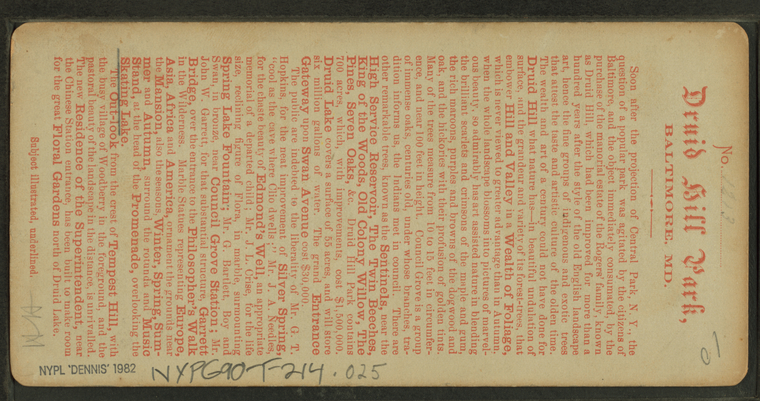 No. 123
Druid Hill Park,
BALTIMORE, MD.
Soon after the projection of Central Park, N. Y., the
question of a popular park was agitated by the citizens of
Baltimore, and the object immediately consummated, by the
purchase of the memorial estate of the Rogers' family, known
as Druid Hill, which had been improved for more than a
hundred years after the style of the old English landscape
art, hence the fine groups of indigenous and exotic trees
that attest the taste and artistic culture of the olden time.
The wealth and art of a century could not have done for
Druid Hill what nature has—the undulation of
surface, and the grandeur and variety of its forest-trees, that
embower Hill and Valley in a Wealth of Foliage,
which is never viewed to greater advantage than in Autumn,
when the whole landscape blossoms into pictures of marvel-
ous beauty, so harmoniously has art assisted nature in blending
the vermilion, scarlets and crimsons of the maple and gum,
the rich maroons, purples and browns of the dogwood and
oak, and the hickories with their profusion of golden tints.
Many of the trees measure from 10 to 15 feet in circumfer-
ence, and nearly 100 feet in height. Council Grove is a group
of immense oaks, centuries old, under whose branches, tra-
dition informs us, the Indians met in council. There are
other remarkable trees, known as the Sentinels, near the
High Service Reservoir, The Twin Beeches,
King of the Woods, Old Colony Willow, The
Pines, Seven Oaks, &c. Druid Hill Park comprises
700 acres, which, with improvements, cost $1,500,000.
Druid Lake covers a surface of 55 acres, and will store
six million gallons of water. The grand Entrance
Gateway upon Swan Avenue cost $20,000.
The Park is indebted to the liberality of Mr. G. T.
Hopkins, for the great increasement of Silver Spring,
"cool as the cave where Clio dwells;" Mr. J. A. Needles,
for the chaste beauty of Edmond's Well, an appropriate
memorial of a departed child; Mr. J. L. Crise, for the life
size, marbleized figures of Zitkra, representing
Spring Lake Fountain; Mr. G. Bartlett, Boy and
Swan, in bronze, near Council Grove Station; Mr.
John W. Garrett, for that substantial structure, Garrett
Bridge, over the entrance to the Philosopher's Walk
in the Wilderness. The statues representing Europe,
Asia, Africa and America, adorn the grounds near
the Mansion, also the seasons, Winter, Spring, Sum-
mer and Autumn, surround the rotunda and Music
Stand, at the head of the Promenade, overlooking the
Skating Lake.
The Out-look, from the crest of Tempest Hill, with
the busy village of Woodberry in the foreground, and the
pastoral beauty of the landscape in the distance, is unrivalled.
The new Residence of the Superintendent, near
the Chinese Station entrance, has been built to make room
for the great Floral Gardens north of Druid Lake.
Subject illustrated underlined.
NYPL 'DENNIS' 1982
NYPG90-F-214.025